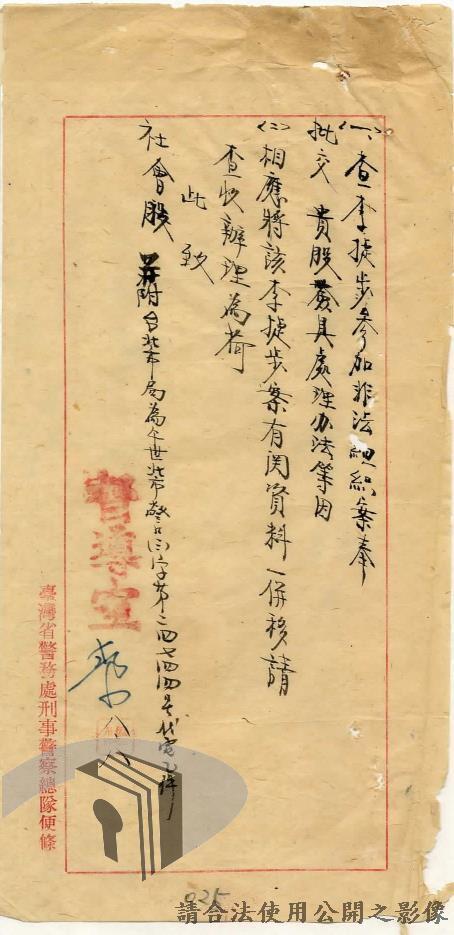 (一)、查李捷步參加非法組織案奉
批交 貴股簽具處理办法等因
(二)相應將該李捷步案有関資料一併移請
查收辦理為荷
此致
社會股
附台北市局為午世北市警
字第二四七四四号代電乙件
督導室
八八
臺灣省警務處刑事警察總隊便條
025
請合法使用公開之影像